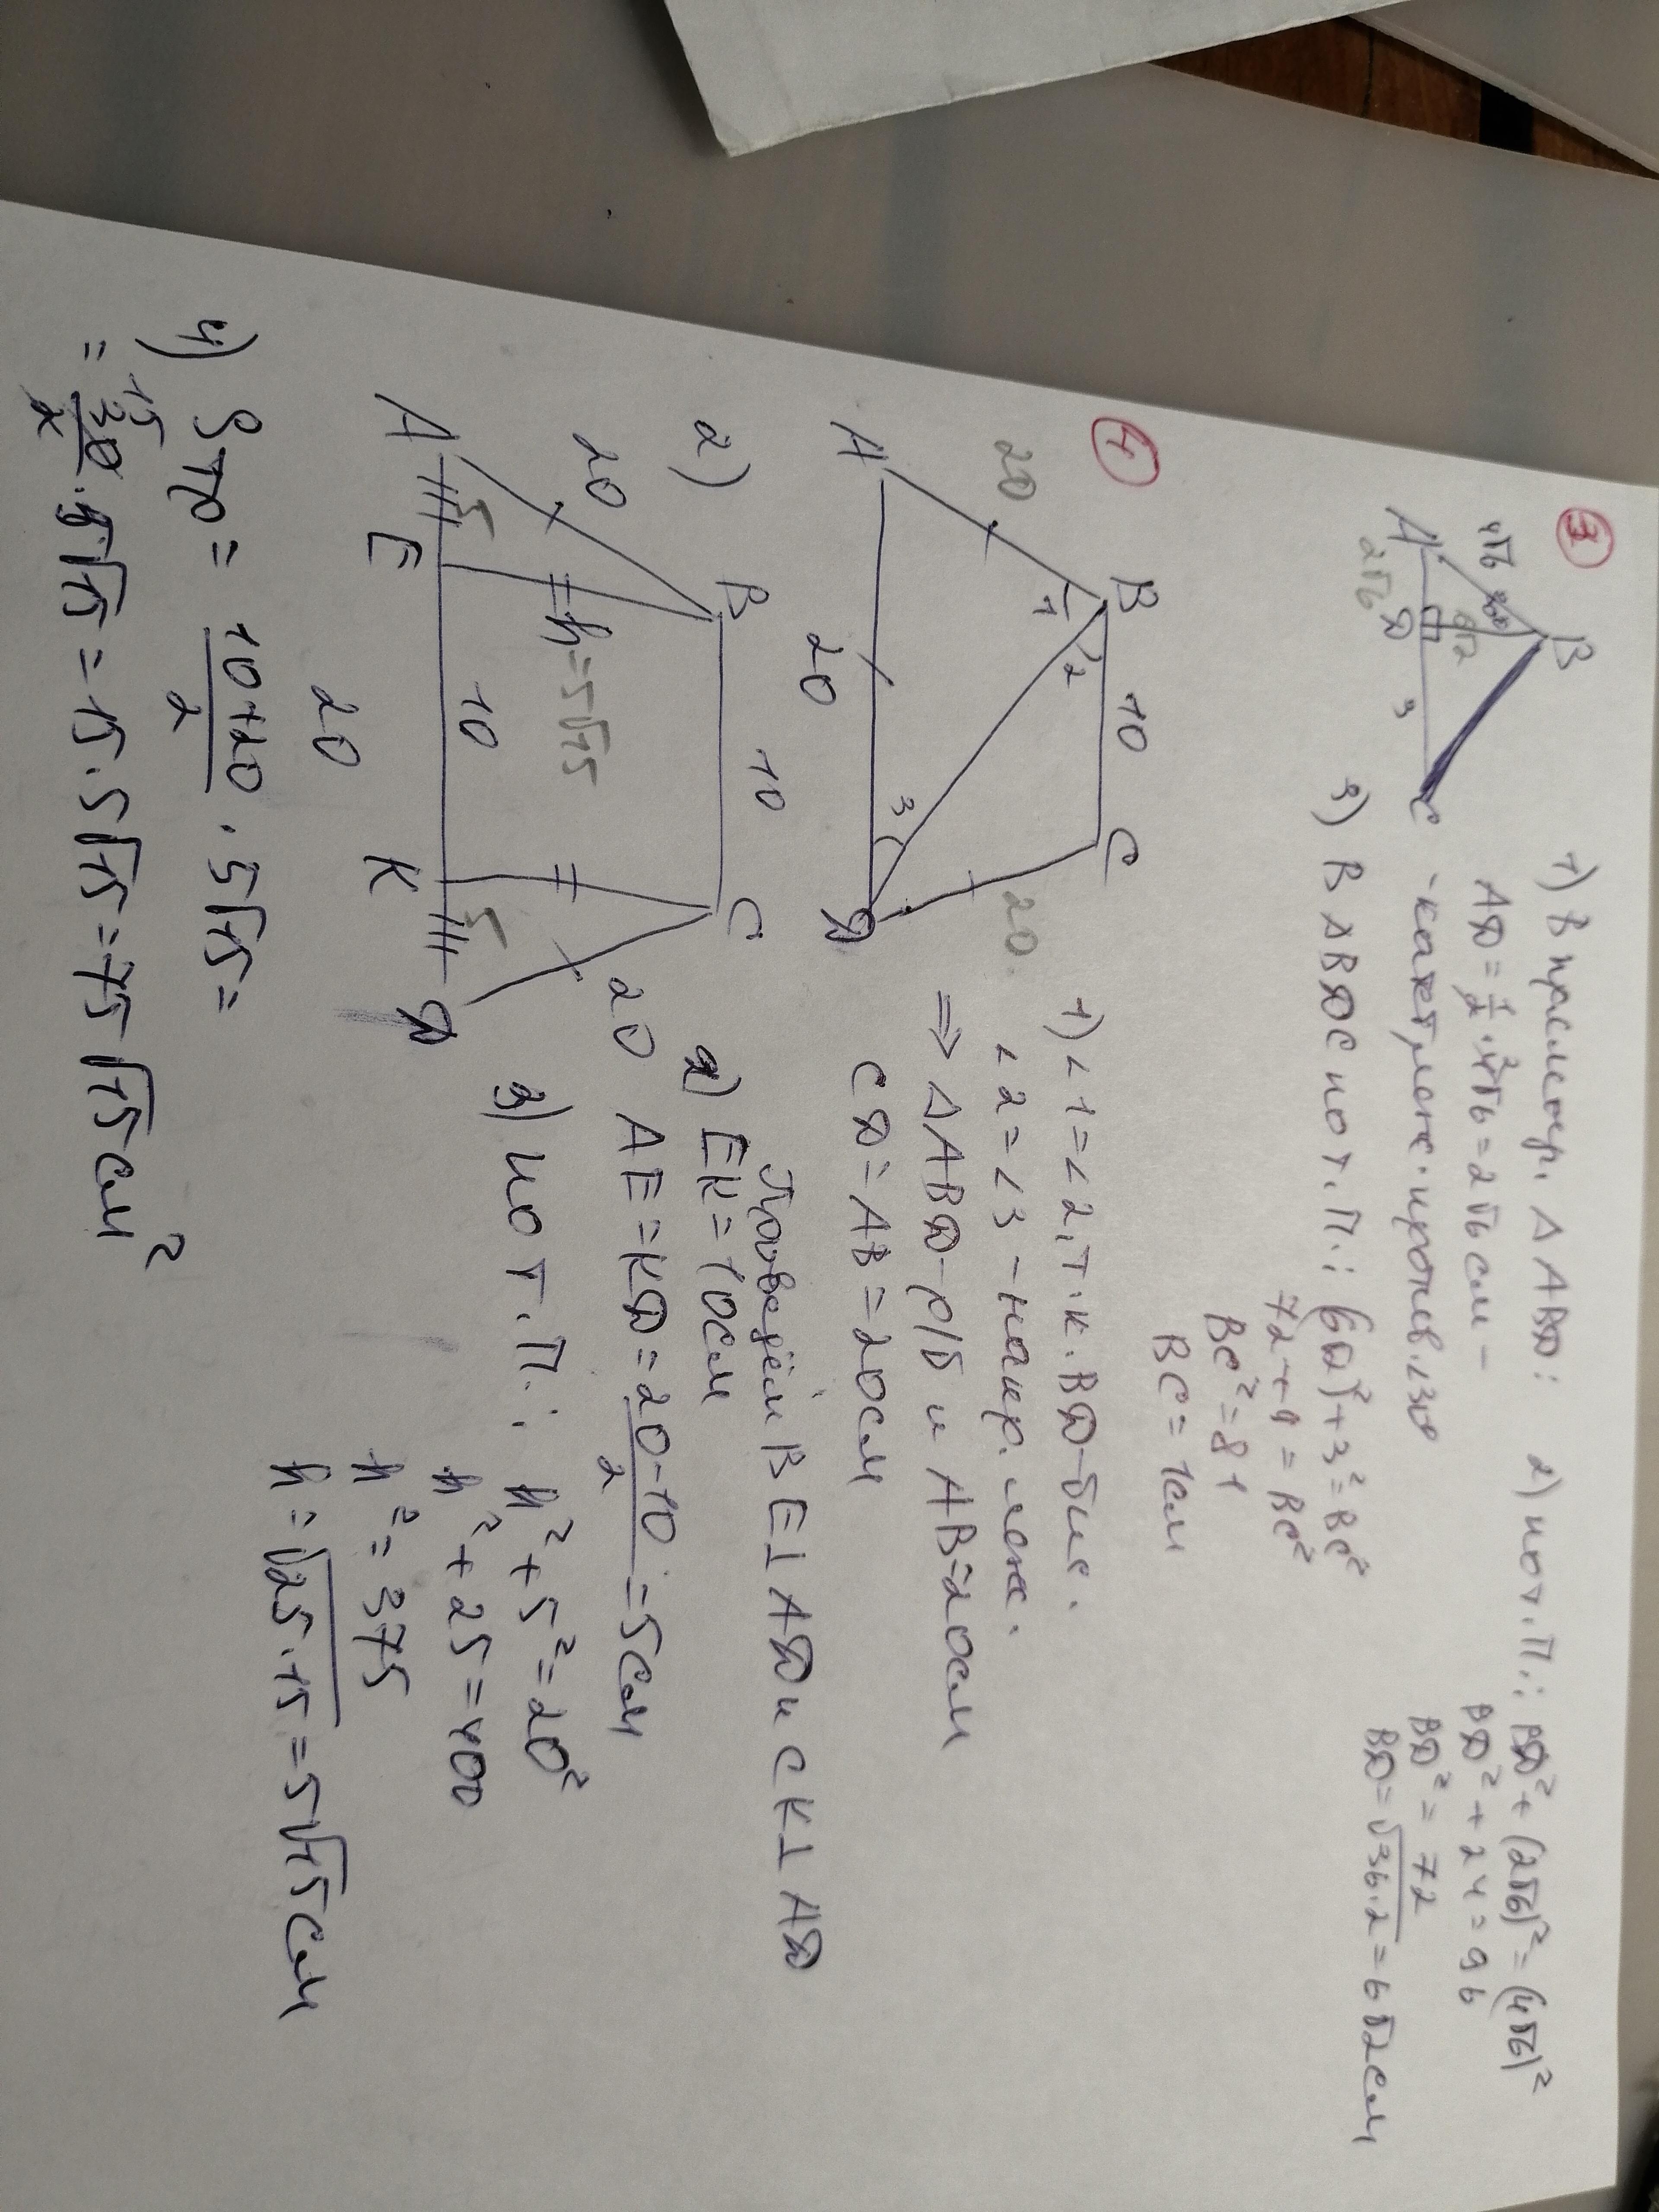 3
B
4√6
30°
6√2
A
2√6
D
3
C
1) В прямоуг. △ABD:
AD = 1/2 · 4√6 = 2√6 см -
- катет, леж. против ∠30°
2) по т. П.: BD² + (2√6)² = (4√6)²
BD² + 24 = 96
BD² = 72
BD = √36·2 = 6√2 см
3) В △BDC по т. П.: (6√2)² + 3² = BC²
72 + 9 = BC²
BC² = 81
BC = 9 см
4
B 10 C
20
1
2
20
3
A 20 D
1) ∠1 = ∠2, т.к. BD - бис.
∠2 = ∠3 - накр. леж.
⇒ △ABD - р/б и AB = 20 см
CD = AB = 20 см
2)
B 10 C
20
h = 5√15
20
A 5 E 10 K 5 D
20
Проведём BE⊥AD и CK⊥AD
2) EK = 10 см
AE = KD = (20-10)/2 = 5 см
3) по т. П.: h² + 5² = 20²
h² + 25 = 400
h² = 375
h = √25·15 = 5√15 см
4) Sтр = (10+20)/2 · 5√15 =
= 30/2 · 5√15 = 15 · 5√15 = 75√15 см²